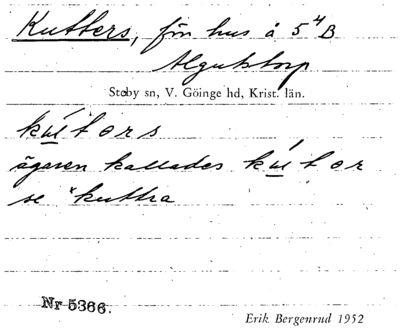 Kutters, förr hus å 5⁴B
Algustorp
Stoby sn, V. Göinge hd, Krist. län.
kút̄ers
ägaren kallades kút̄er
se *kuttra
Nr 5366.
Erik Bergenrud 1952